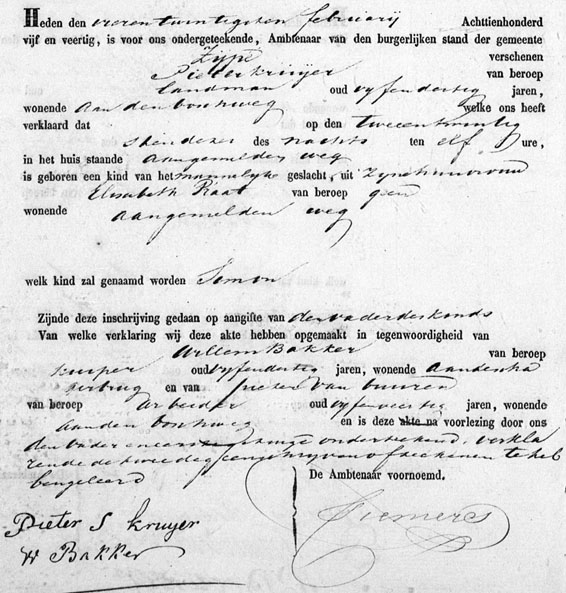 Heden den vierentwintigsten februarij Achttienhonderd
vijf en veertig, is voor ons ondergeteekende, Ambtenaar van den burgerlijken stand der gemeente
Zijpe verschenen
Pieter kruijer van beroep
landman oud vyfendertig jaren,
wonende aan den bouweg welke ons heeft
verklaard dat op den tweeentwintig
stendezer des nachts ten elf Ure,
in het huis staande aangemelden weg
is geboren een kind van het mannelyke geslacht, uit zynehuisvrouw
Elisabeth Raat van beroep geen
wonende aangemelden weg
welk kind zal genaamd worden Simon
Zijnde deze inschrijving gedaan op aangifte van den vader des kinds
Van welke verklaring wij deze akte hebben opgemaakt in tegenwoordigheid van
Willem Bakker van beroep
kuiper oud vyfendertig jaren, wonende aandesta
terbrug en van pieter van buuren
van beroep Arbeider oud vyfenveertig jaren, wonende
aanden bouweg en is deze akte na voorlezing door ons
den vader en eerste getuige onderteekend, verkla
rende de tweede geen schryven of teekenen te heb
ben geleerd
De Ambtenaar voornoemd.
Pieter S kruyer
W Bakker